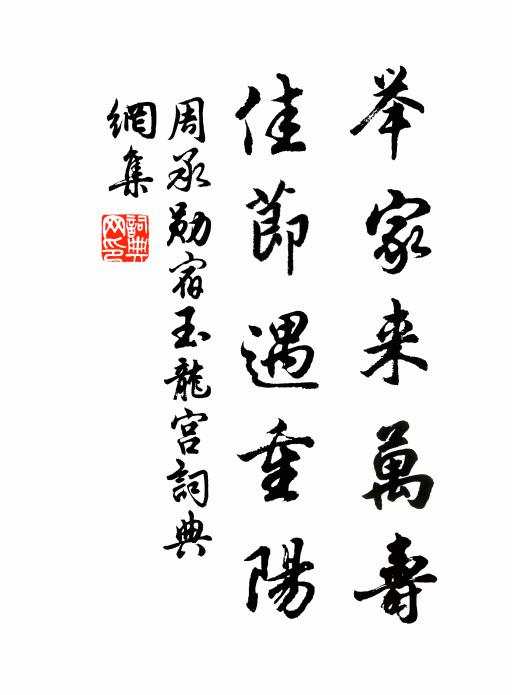 举家来萬壽
佳節遇重陽
周承勛宿玉龍宫詞典
網集
詞典
网印